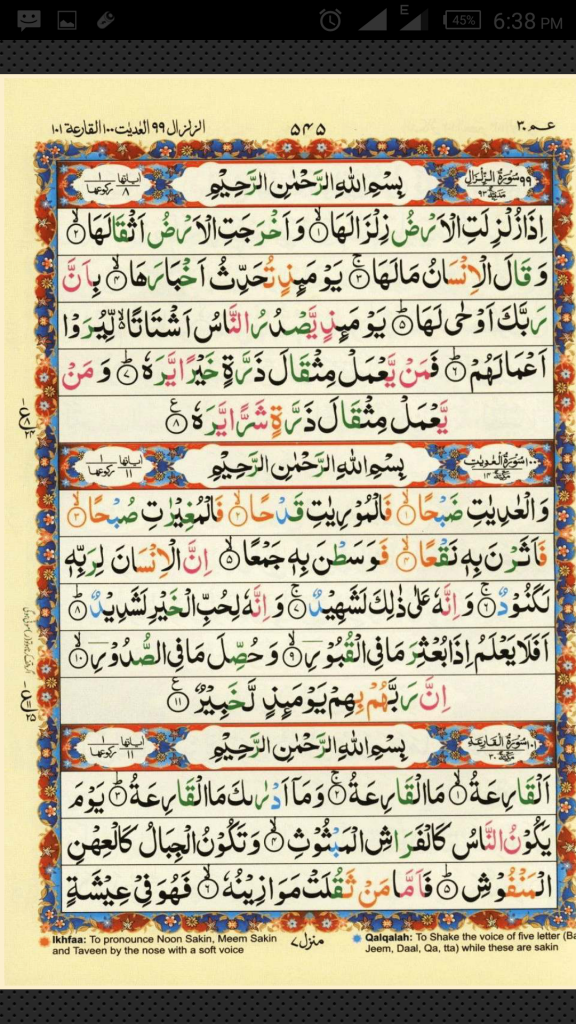 E 45% 6:38 PM
عـم ٣٠ ۵۴۵ الزلزال ٩٩ العديت ١٠٠ القارعة ١٠١
٩٩ سُوْرَةُ الزِّلْزَالِ مَدَنِيَّةٌ ٩٣ بِسْمِ اللهِ الرَّحْمٰنِ الرَّحِيْمِ اٰيَاتُهَا ٨ رُكُوْعُهَا ١
اِذَا زُلْزِلَتِ الْاَرْضُ زِلْزَالَهَا ۙ‏﴿۱﴾ وَ اَخْرَجَتِ الْاَرْضُ اَثْقَالَهَا ۙ‏﴿۲﴾
وَ قَالَ الْاِنْسَانُ مَا لَهَا ۚ‏﴿۳﴾ يَوْمَئِذٍ تُحَدِّثُ اَخْبَارَهَا ۙ‏﴿۴﴾ بِاَنَّ
رَبَّكَ اَوْحٰى لَهَا ؕ‏﴿۵﴾ يَوْمَئِذٍ يَّصْدُرُ النَّاسُ اَشْتَاتًا ۙ لِّيُرَوْا
اَعْمَالَهُمْ ؕ‏﴿۶﴾ فَمَنْ يَّعْمَلْ مِثْقَالَ ذَرَّةٍ خَيْرًا يَّرَهٗ ؕ‏﴿۷﴾ وَ مَنْ
يَّعْمَلْ مِثْقَالَ ذَرَّةٍ شَرًّا يَّرَهٗ ‏﴿۸﴾
١٠٠ سُوْرَةُ الْعٰدِيٰتِ مَكِّيَّةٌ ١٤ بِسْمِ اللهِ الرَّحْمٰنِ الرَّحِيْمِ اٰيَاتُهَا ١١ رُكُوْعُهَا ١
وَالْعٰدِيٰتِ ضَبْحًا ۙ‏﴿۱﴾ فَالْمُوْرِيٰتِ قَدْحًا ۙ‏﴿۲﴾ فَالْمُغِيْرٰتِ صُبْحًا ۙ‏﴿۳﴾
فَاَثَرْنَ بِهٖ نَقْعًا ۙ‏﴿۴﴾ فَوَسَطْنَ بِهٖ جَمْعًا ۙ‏﴿۵﴾ اِنَّ الْاِنْسَانَ لِرَبِّهٖ
لَكَنُوْدٌ ۚ‏﴿۶﴾ وَ اِنَّهٗ عَلٰى ذٰلِكَ لَشَهِيْدٌ ۚ‏﴿۷﴾ وَ اِنَّهٗ لِحُبِّ الْخَيْرِ لَشَدِيْدٌ ؕ‏﴿۸﴾
اَفَلَا يَعْلَمُ اِذَا بُعْثِرَ مَا فِي الْقُبُوْرِ ۙ‏﴿۹﴾ وَ حُصِّلَ مَا فِي الصُّدُوْرِ ۙ‏﴿۱۰﴾
اِنَّ رَبَّهُمْ بِهِمْ يَوْمَئِذٍ لَّخَبِيْرٌ ‏﴿۱۱﴾
١٠١ سُوْرَةُ الْقَارِعَةِ مَكِّيَّةٌ ٣٠ بِسْمِ اللهِ الرَّحْمٰنِ الرَّحِيْمِ اٰيَاتُهَا ١١ رُكُوْعُهَا ١
اَلْقَارِعَةُ ۙ‏﴿۱﴾ مَا الْقَارِعَةُ ۚ‏﴿۲﴾ وَ مَاۤ اَدْرٰىكَ مَا الْقَارِعَةُ ؕ‏﴿۳﴾ يَوْمَ
يَكُوْنُ النَّاسُ كَالْفَرَاشِ الْمَبْثُوْثِ ۙ‏﴿۴﴾ وَ تَكُوْنُ الْجِبَالُ كَالْعِهْنِ
الْمَنْفُوْشِ ؕ‏﴿۵﴾ فَاَمَّا مَنْ ثَقُلَتْ مَوَازِيْنُهٗ ۙ‏﴿۶﴾ فَهُوَ فِيْ عِيْشَةٍ
منزل ٧
Ikhfaa: To pronounce Noon Sakin, Meem Sakin
and Taveen by the nose with a soft voice
Qalqalah: To Shake the voice of five letter (Ba
Jeem, Daal, Qa, tta) while these are sakin